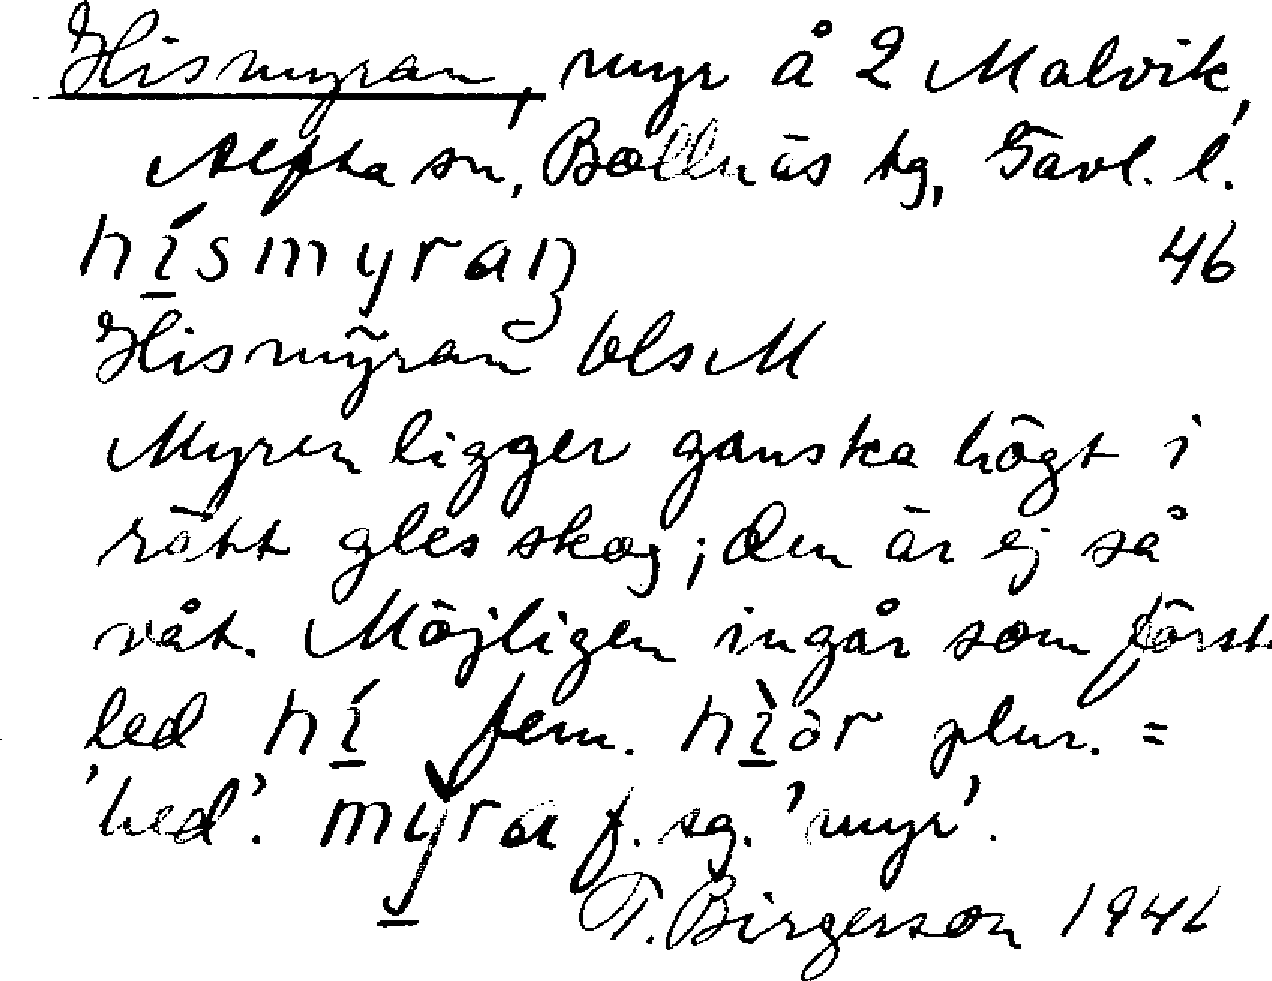 Hismyran, myr å 2 Malvik,
Alfta sn, Bollnäs tg, Gävl. l.
hísmyraṇ 46
Hismȳran blsM
Myren ligger ganska högt i
rätt gles skog; den är ej så
våt. Möjligen ingår som först.
led hí fem. hìòr plur. =
'hed'. mỳra f. sg. 'myr'.
T. Birgerson 1946